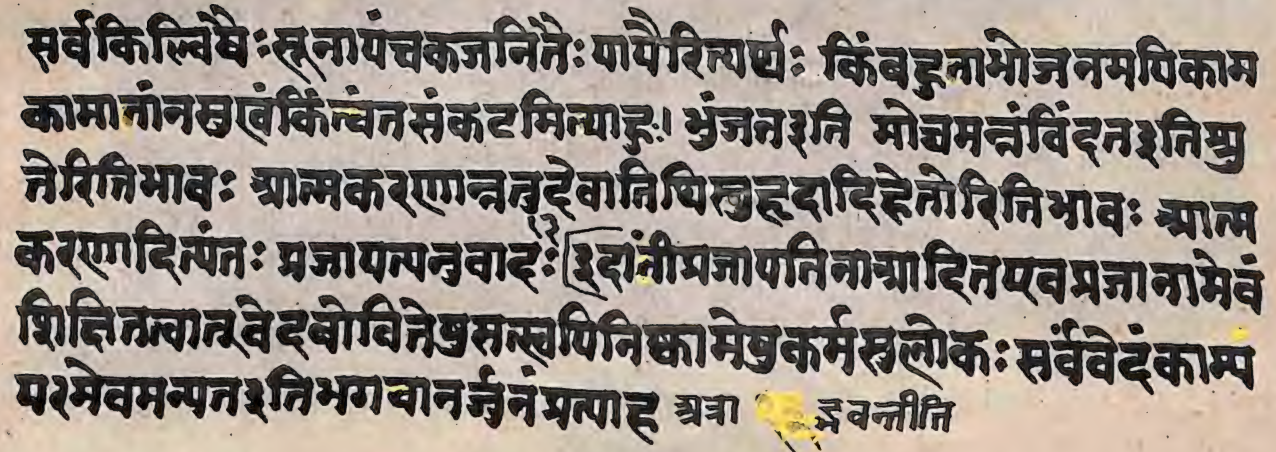 सर्वकिल्विषैः सूनापंचकजनितैः पापैरित्यर्थः किंबहुनाभोजनमपिकाम
कामानांनसुखंकिंत्वंतसंकटमित्याह।भुंजतइति मोघमन्नंविंदतइतिश्रु
तेरितिभावः आत्मकरणान्नतुदेवातिथिसुहृदादिहेतोरितिभावः आत्म
करणादित्यंतः प्रजापत्यनुवादः १३ इदांनीप्रजापतिनाआदितएवप्रजानामेवं
शिक्षितत्वात्वेदबोधितेषुसत्स्वपिनिष्कामेषुकर्मसुलोकः सर्ववेदंकाम्प
परमेवमन्यतइतिभगवानर्जुनंप्रत्याह अत्रा द्भवन्तीति